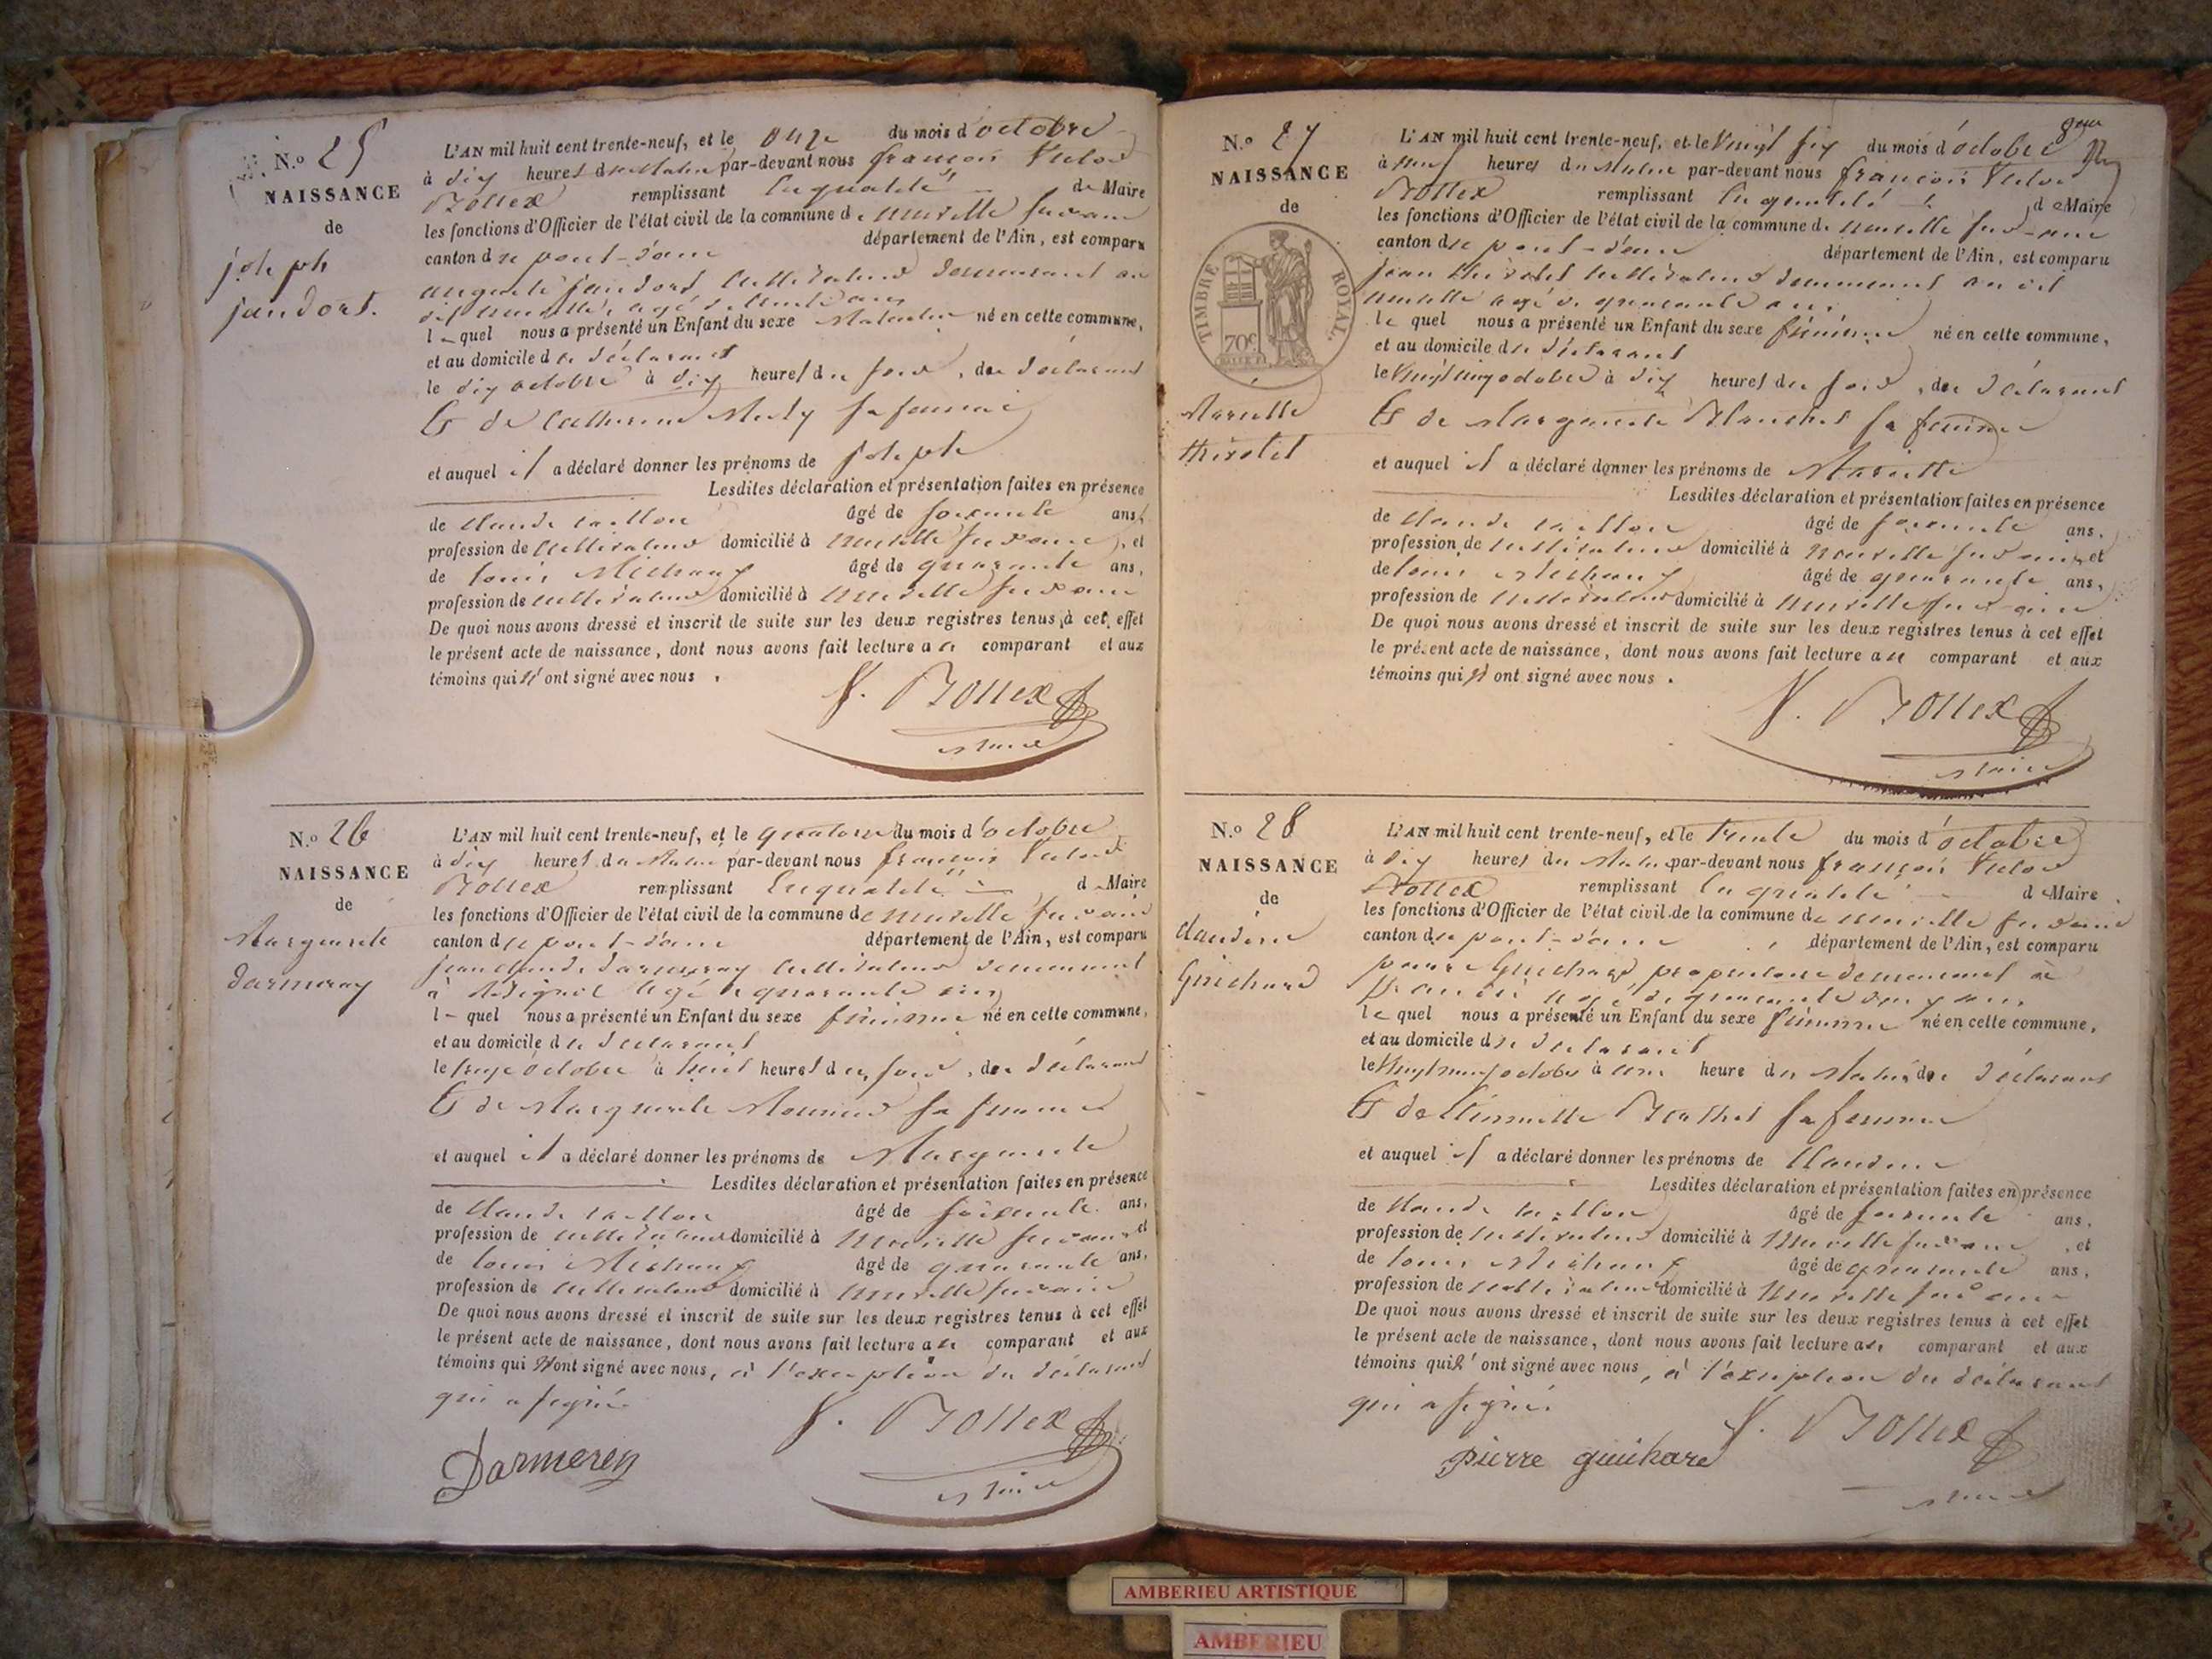 N.o 25
NAISSANCE
de
joseph
jandort.
L'AN mil huit cent trente-neuf, et le onze du mois d'octobre
à dix heures du Matin par-devant nous françois Victor
Bollex remplissant en qualité de Maire
les fonctions d'Officier de l'état civil de la commune de neuville sur ain
canton de pont-d'ain département de l'Ain, est comparu
auguste jandort cultivateur demeurant au
dit neuville, agé de trente ans
le quel nous a présenté un Enfant du sexe Masculin né en cette commune,
et au domicile de déclarant
le dix octobre à dix heures du soir, du déclarant
Et de Catherine sa femme
et auquel il a déclaré donner les prénoms de joseph
Lesdites déclaration et présentation faites en présence
de Claude caillon âgé de soixante ans,
profession de cultivateur domicilié à neuville sur ain, et
de louis Michaux âgé de quarante ans,
profession de cultivateur domicilié à neuville sur ain
De quoi nous avons dressé et inscrit de suite sur les deux registres tenus à cet effet
le présent acte de naissance, dont nous avons fait lecture au comparant et aux
témoins qui n'ont signé avec nous.
V. Bollex
Maire
N.o 26
NAISSANCE
de
Marguerite
Darmeray
L'AN mil huit cent trente-neuf, et le quatorze du mois d'octobre
à dix heures du Matin par-devant nous françois Victor
Bollex remplissant en qualité de Maire
les fonctions d'Officier de l'état civil de la commune de neuville sur ain
canton de pont-d'ain département de l'Ain, est comparu
jean claude darmeray cultivateur demeurant
à agé de quarante ans
le quel nous a présenté un Enfant du sexe féminin né en cette commune,
et au domicile de déclarant
le treize octobre à huit heures du soir, du déclarant
Et de Marguerite Mounier sa femme
et auquel il a déclaré donner les prénoms de Marguerite
Lesdites déclaration et présentation faites en présence
de Claude caillon âgé de soixante ans,
profession de cultivateur domicilié à neuville sur ain et
de louis Michaux âgé de quarante ans,
profession de cultivateur domicilié à neuville sur ain
De quoi nous avons dressé et inscrit de suite sur les deux registres tenus à cet effet
le présent acte de naissance, dont nous avons fait lecture au comparant et aux
témoins qui n'ont signé avec nous, à l'exception du déclarant
qui a signé.
V. Bollex
Darmerey
Maire
N.o 27
NAISSANCE
de
TIMBRE ROYAL.
70c
Mariette
thirolet
L'AN mil huit cent trente-neuf, et le Vingt six du mois d'octobre
à neuf heures du Matin par-devant nous françois Victor
Bollex remplissant en qualité de Maire
les fonctions d'Officier de l'état civil de la commune de neuville sur-ain
canton de pont-d'ain département de l'Ain, est comparu
jean thirolet cultivateur demeurant au dit
neuville agé de quarante ans.
le quel nous a présenté un Enfant du sexe féminin né en cette commune,
et au domicile du déclarant
le Vingt cinq octobre à dix heures du soir, du déclarant
Et de Marguerite Blanchet sa femme
et auquel il a déclaré donner les prénoms de Mariette
Lesdites déclaration et présentation faites en présence
de Claude caillon âgé de soixante ans,
profession de cultivateur domicilié à neuville sur ain, et
de louis Michaux âgé de quarante ans,
profession de cultivateur domicilié à neuville sur-ain
De quoi nous avons dressé et inscrit de suite sur les deux registres tenus à cet effet
le présent acte de naissance, dont nous avons fait lecture au comparant et aux
témoins qui n'ont signé avec nous.
V. Bollex
Maire
N.o 28
NAISSANCE
de
Claudine
Guichard
L'AN mil huit cent trente-neuf, et le trente du mois d'octobre
à dix heures du Matin par-devant nous françois Victor
Bollex remplissant en qualité de Maire
les fonctions d'Officier de l'état civil de la commune de neuville sur ain
canton de pont-d'ain département de l'Ain, est comparu
pierre Guichard propriétaire demeurant à
agé de quarante deux ans.
le quel nous a présenté un Enfant du sexe féminin né en cette commune,
et au domicile du déclarant
le Vingt neuf octobre à une heure du Matin, du déclarant
Et de sa femme
et auquel il a déclaré donner les prénoms de Claudine
Lesdites déclaration et présentation faites en présence
de Claude caillon âgé de soixante ans,
profession de cultivateur domicilié à neuville sur ain, et
de louis Michaux âgé de quarante ans,
profession de cultivateur domicilié à neuville sur ain
De quoi nous avons dressé et inscrit de suite sur les deux registres tenus à cet effet
le présent acte de naissance, dont nous avons fait lecture au comparant et aux
témoins qui n'ont signé avec nous, à l'exception du déclarant
qui a signé.
V. Bollex
pierre guichard
Maire
AMBERIEU ARTISTIQUE
AMBERIEU